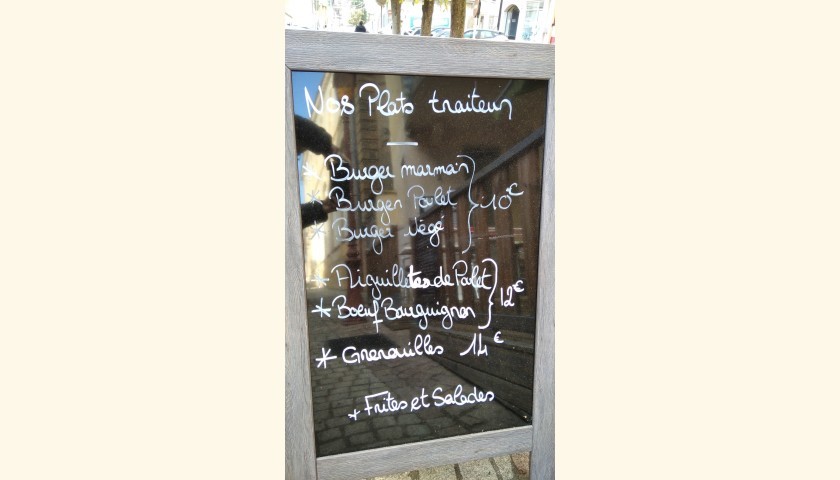 Nos Plats traiteur
* Burger marmain
* Burger Poulet } 10€
* Burger végé
* Aiguillettes de Poulet
* Boeuf Bourguignon } 12€
* Grenouilles 14€
+ Frites et Salades